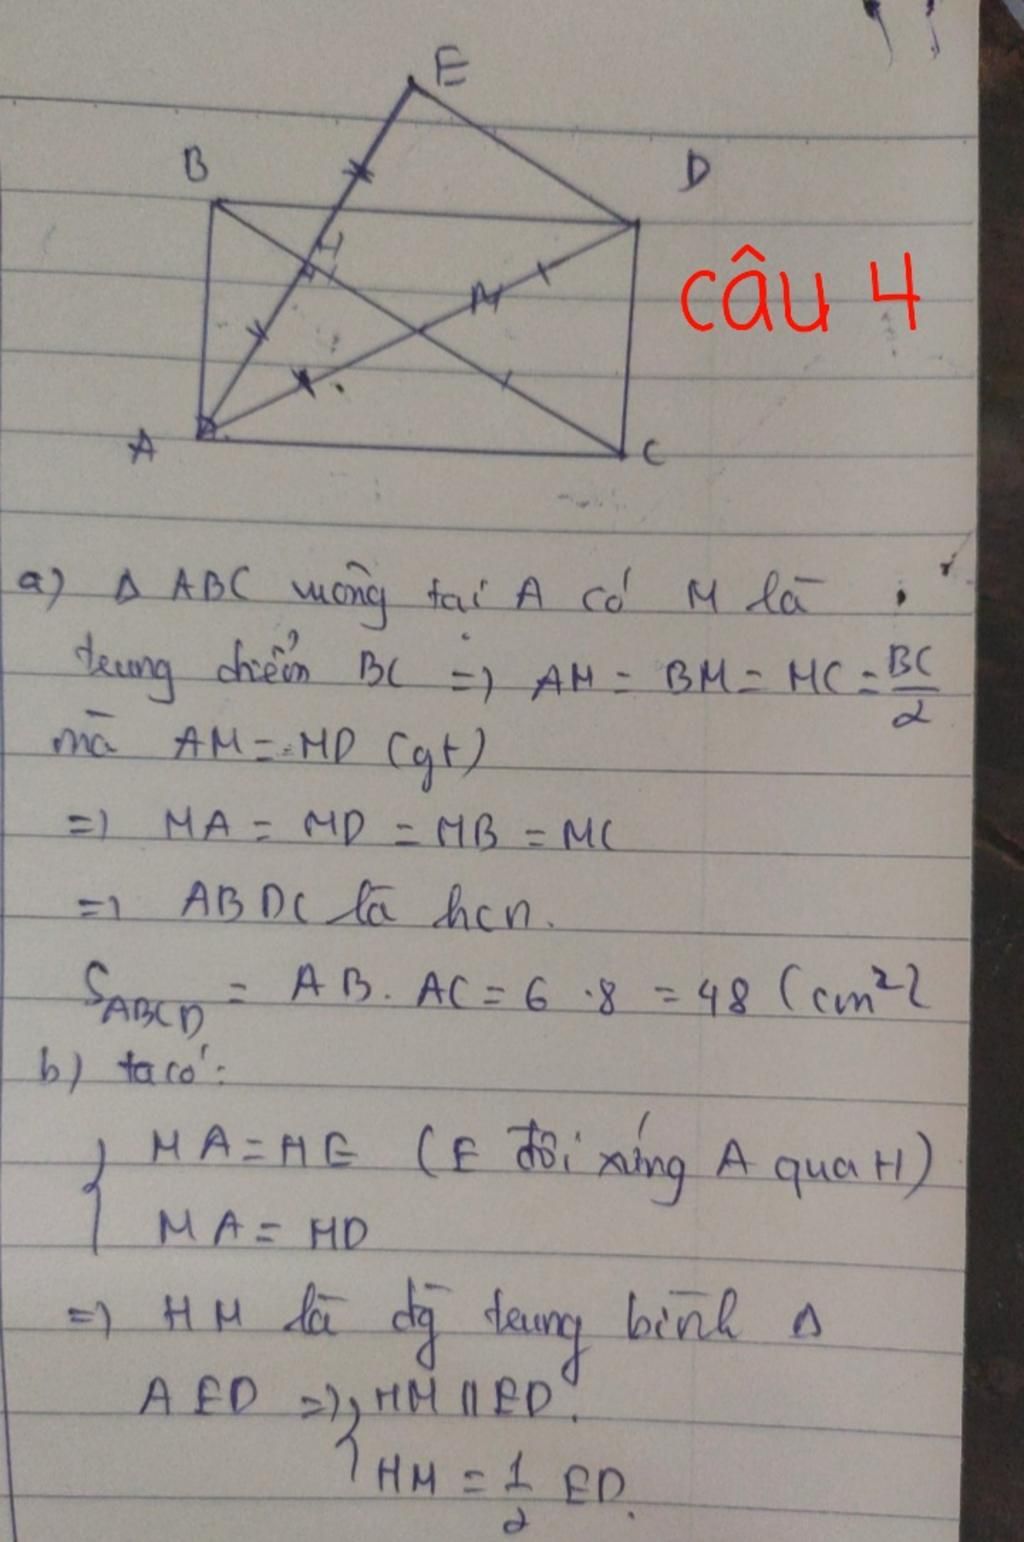 E
B
D
H
M
câu 4
A
C
a) Δ ABC vuông tại A có M là
trung điểm BC => AM = BM = MC = BC/2
mà AM = MD (gt)
=> MA = MD = MB = MC
=> ABDC là hcn.
S_ABCD = AB. AC = 6 . 8 = 48 (cm²)
b) ta có:
{ HA = HE (E đối xứng A qua H)
MA = MD
=> HM là đg trung bình Δ
AED => { HM // ED.
HM = 1/2 ED.